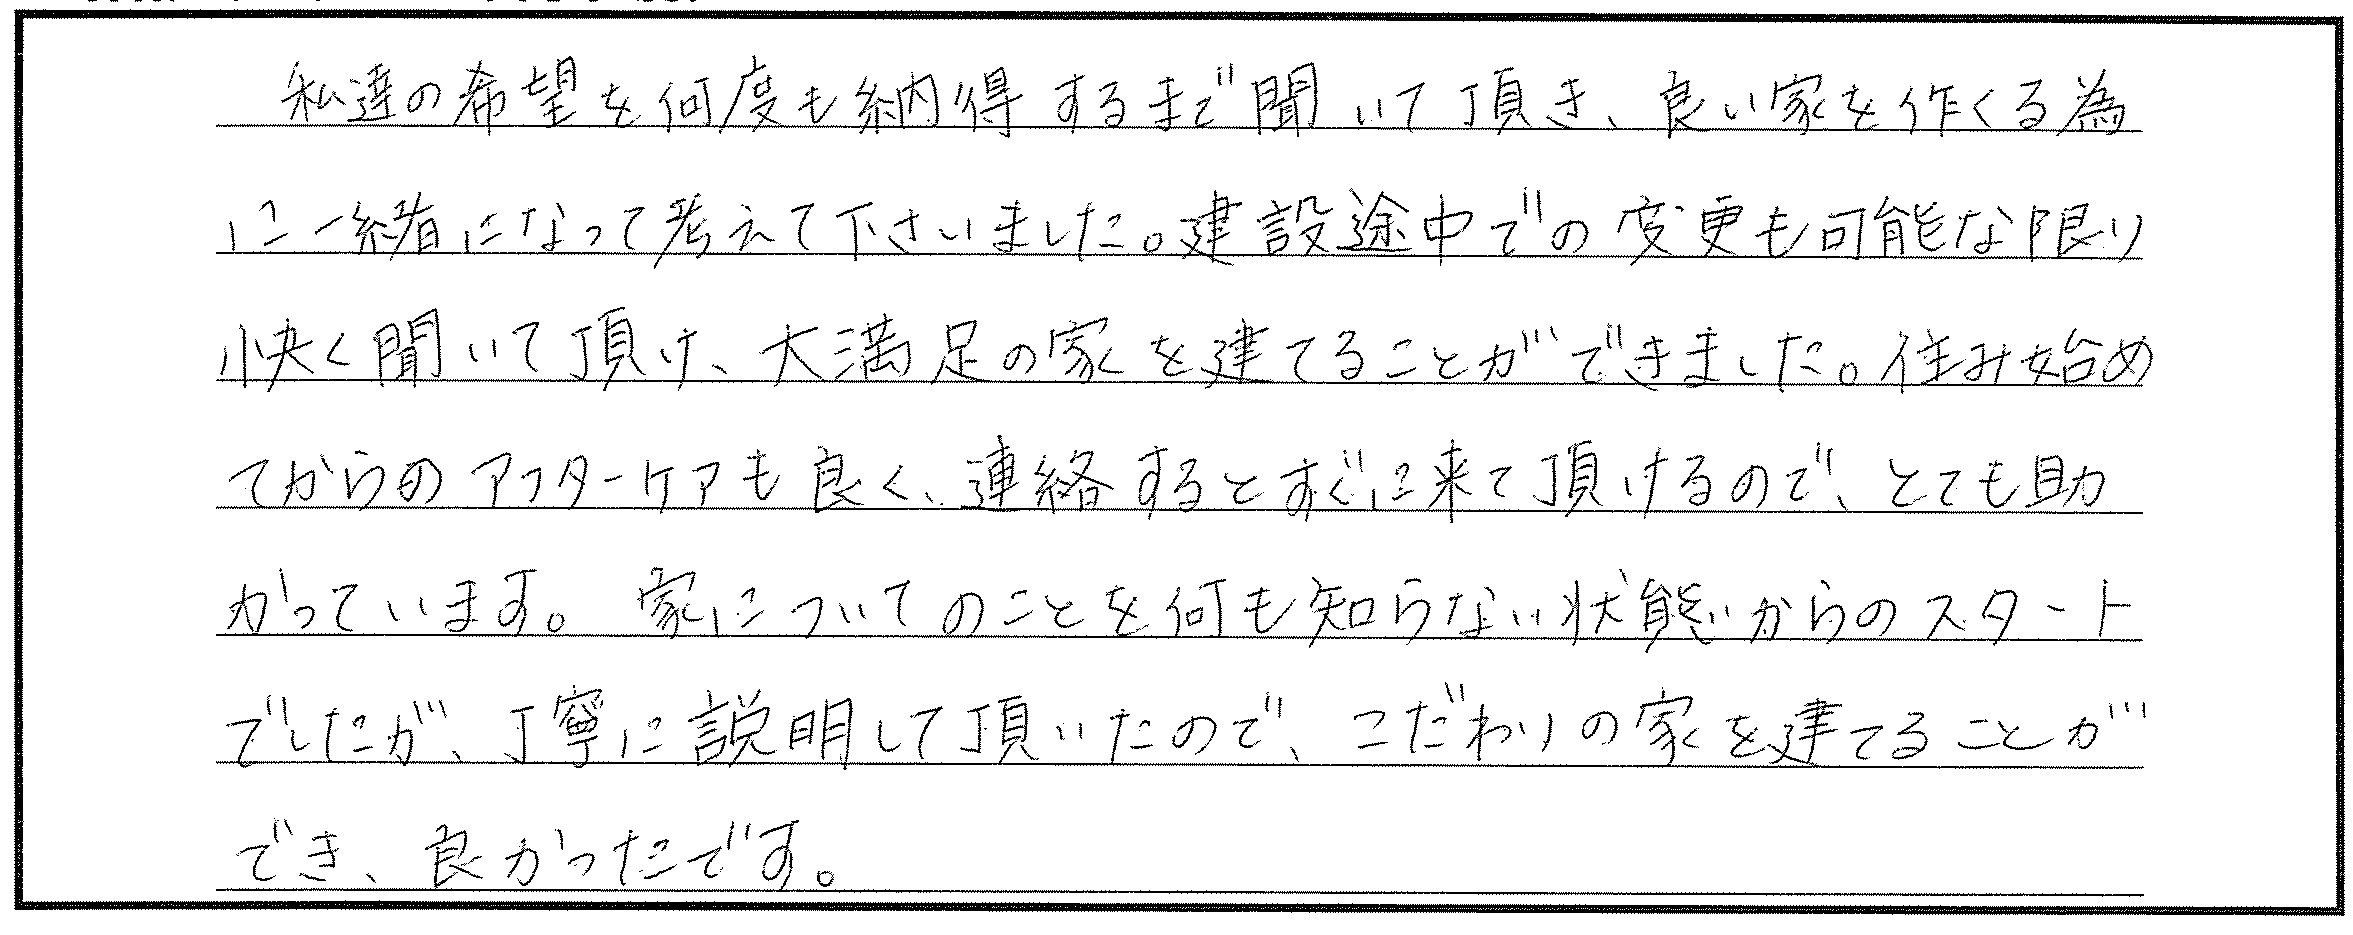 私達の希望を何度も納得するまで聞いて頂き、良い家を作くる為
に一緒になって考えて下さいました。建設途中での変更も可能な限り
快く聞いて頂け、大満足の家を建てることができました。住み始め
てからのアフターケアも良く、連絡するとすぐに来て頂けるので、とても助
かっています。家についてのことを何も知らない状態からのスタート
でしたが、丁寧に説明して頂いたので、こだわりの家を建てることが
でき、良かったです。